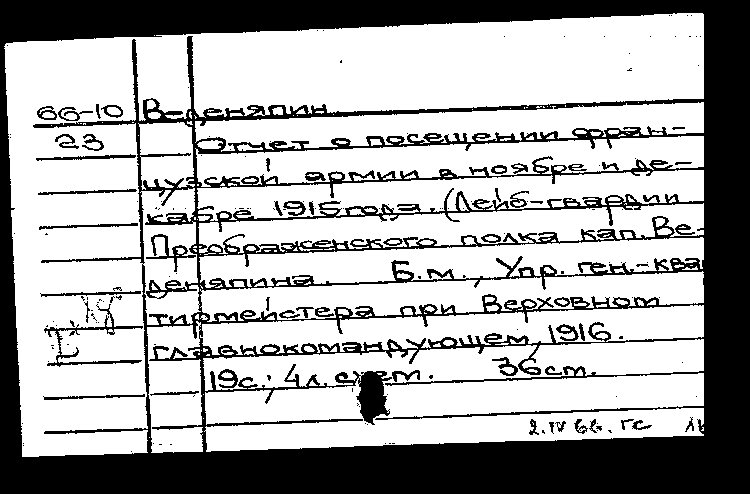 66-10 Веденяпин
23 Отчет о посещении фран-
цузской армии в ноябре и де-
кабре 1915 года. (Лейб-гвардии
Преображенского полка кап. Ве-
деняпина. Б.м., Упр. ген.-ква
тирмейстера при Верховном
главнокомандующем, 1916.
19с.; 4л. схем. 36 см.
2.IV 66. ГС